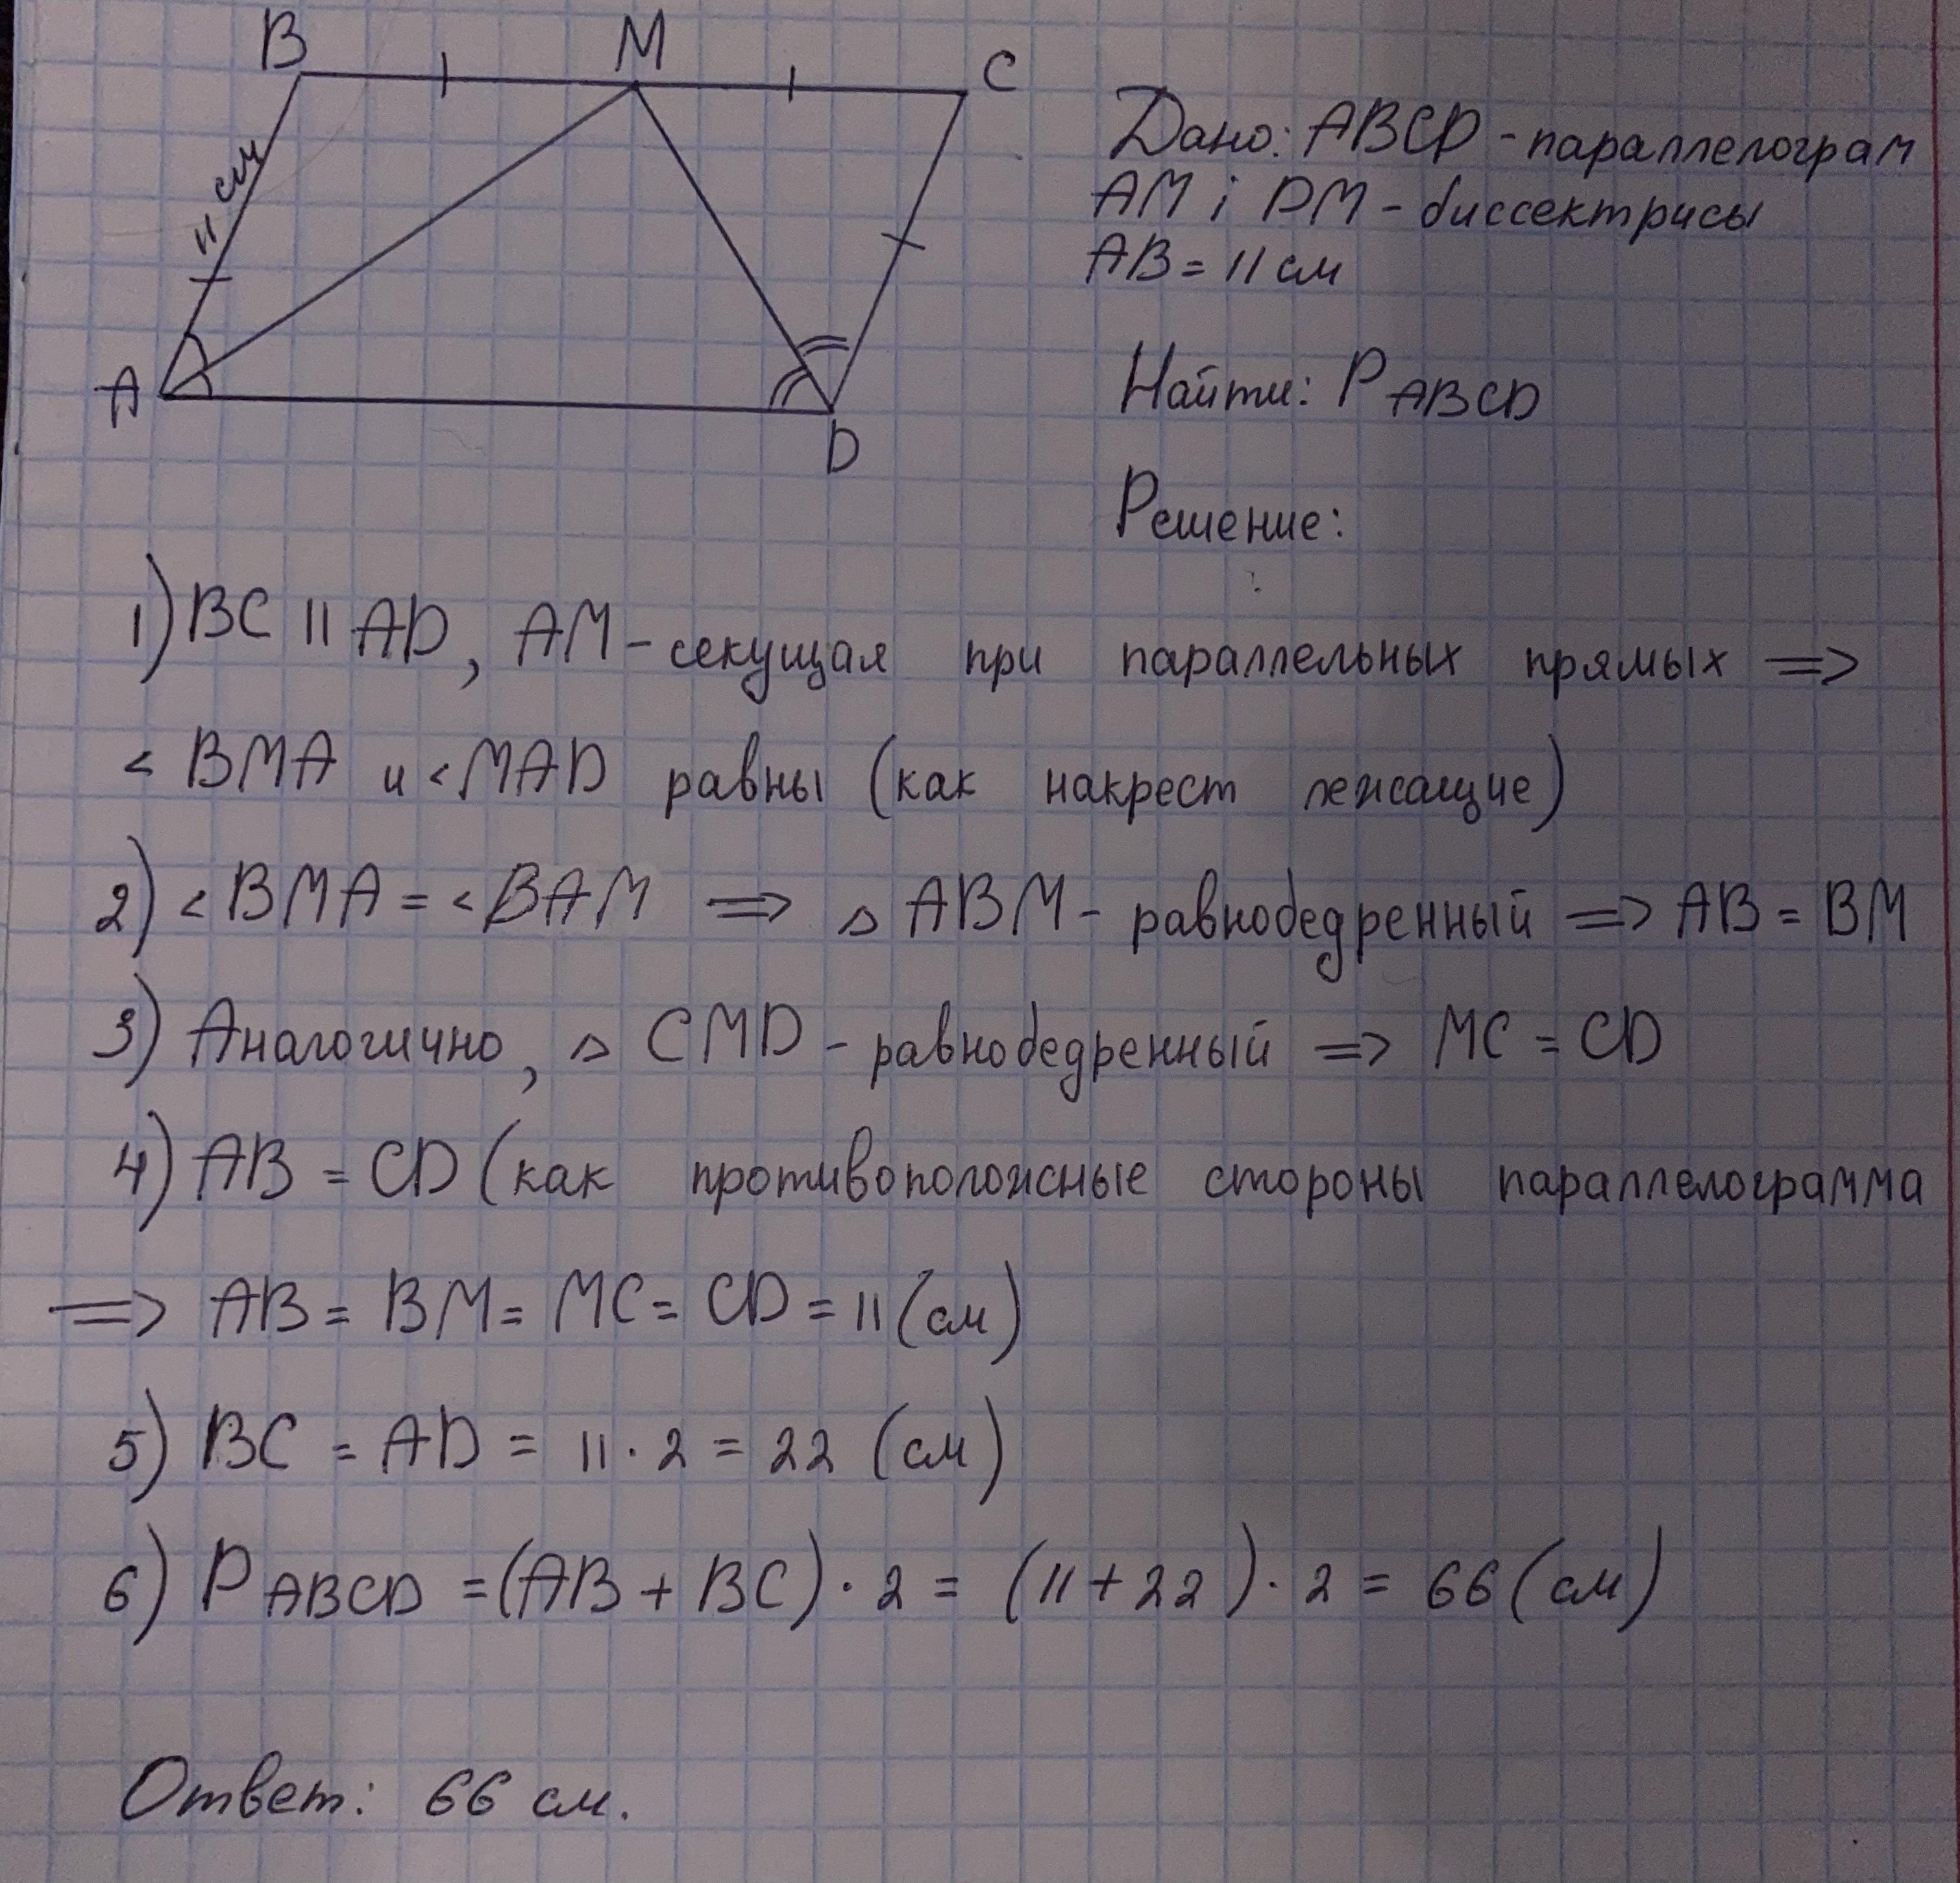 B M C
11 см
A D
Дано: ABCD - параллелограм
AM і DM - биссектрисы
AB = 11 см
Найти: P ABCD
Решение:
1) BC || AD, AM - секущая при параллельных прямых =>
< BMA и < MAD равны (как накрест лежащие)
2) < BMA = < BAM => △ ABM - равнобедренный => AB = BM
3) Аналогично, △ CMD - равнобедренный => MC = CD
4) AB = CD (как противоположные стороны параллелограмма
=> AB = BM = MC = CD = 11 (см)
5) BC = AD = 11 · 2 = 22 (см)
6) P ABCD = (AB + BC) · 2 = (11 + 22) · 2 = 66 (см)
Ответ: 66 см.